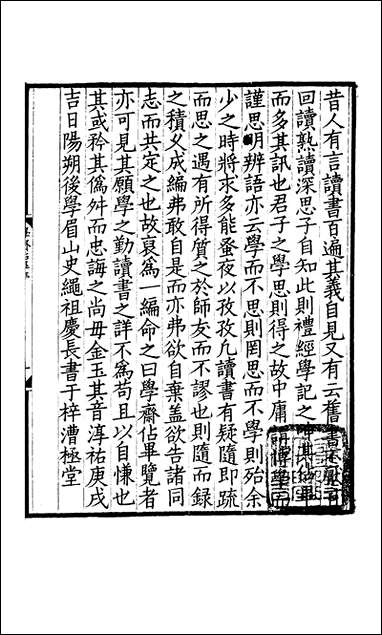 昔人有言讀書百遍其義自見又有云舊書不厭百
回讀熟讀深思子自知此則禮經學記之呻其佔畢
而多其訊也君子之學思則得之故中庸
謹思明辨語亦云學而不思則罔思而不學則殆余
少之時將求多能蚤夜以孜孜凡讀書有疑隨即疏
而思之遇有所得質之於師友而不謬也則隨而錄
之積久成編弗敢自是而亦弗欲自棄蓋欲告諸同
志而共定之也故裒爲一編命之曰學齋佔畢覽者
亦可見其願學之勤讀書之詳不爲苟且以自慊也
其或矜其僞舛而忠誨之尚毋金玉其音淳祐庚戌
吉日陽朔後學眉山史繩祖慶長書于梓漕極堂